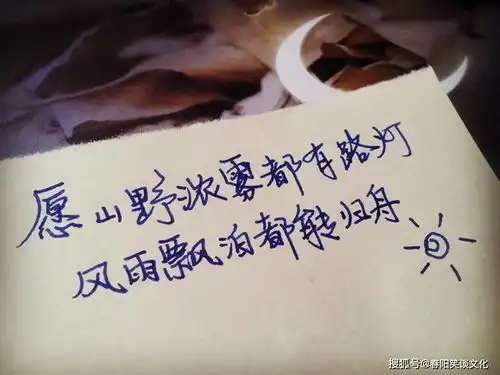 愿山野浓雾都有路灯
风雨飘泊都能归舟
搜狐号@春阳笑谈文化